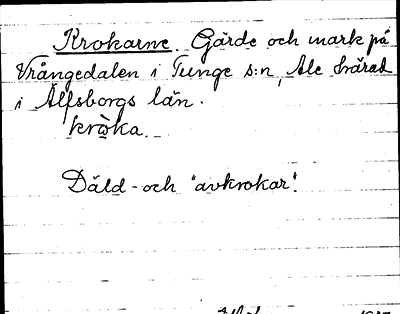 Krokarne. Gärde och mark på
Vrångedalen i Tunge s:n, Ale härad
i Älfsborgs län.
kròka.
Däld- och "avkrokar".